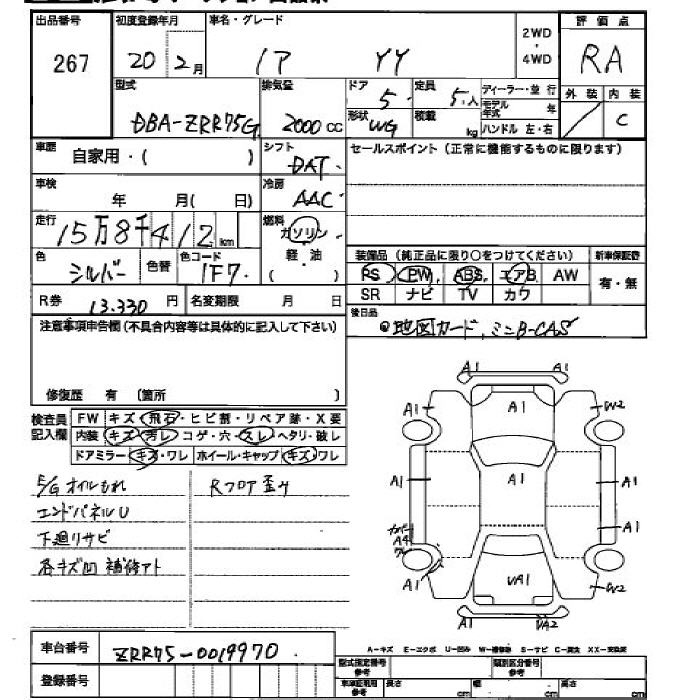 出品番号 初度登録年月 車名・グレード 2WD・4WD 評価点
267 20 2月 ノア YY RA
型式 排気量 ドア 定員 ディーラー・並行 外装 内装
DBA-ZRR75G 2000cc 5 5人 モデル年式 年 / C
形状 WG 積載 kg ハンドル 左・右
車歴 自家用・( ) シフト DAT セールスポイント(正常に機能するものに限ります)
車検 年 月( 日) 冷房 AAC
走行 15万8千412km 燃料 ガソリン
色 シルバー 色替 色コード 1F7 軽・油 ( )
装備品(純正品に限り〇をつけてください) 新車保証書
PS PW ABS エアB AW 有・無
SR ナビ TV カワ
R券 13.330円 名変期限 月 日
後日品
地図カード、ミニB-CAS
注意事項申告欄(不具合内容等は具体的に記入して下さい)
修復歴 有 (箇所 )
検査員記入欄 FW キズ・飛石・ヒビ割・リペア跡・X要
内装 キズ・汚レ・コゲ・穴・スレ・ヘタリ・破レ
ドアミラー キズ・ワレ ホイール・キャップ キズ・ワレ
E/G オイルもれ Rフロア歪み
エンドパネルU
下廻りサビ
各キズ凹 補修アト
A1
A1 A1 W2
A1 A1 A1
カバー A4 ワレ A1
A1 UA1 W2
A1 UA2
A-キズ E-エクボ U-凹み W-補修跡 S-サビ C-腐食 XX-交換済
車台番号 ZRR75-0019970
登録番号
型式指定番号 参考 類別区分番号 参考
車庫証明用 参考 長さ cm 幅 cm 高さ cm